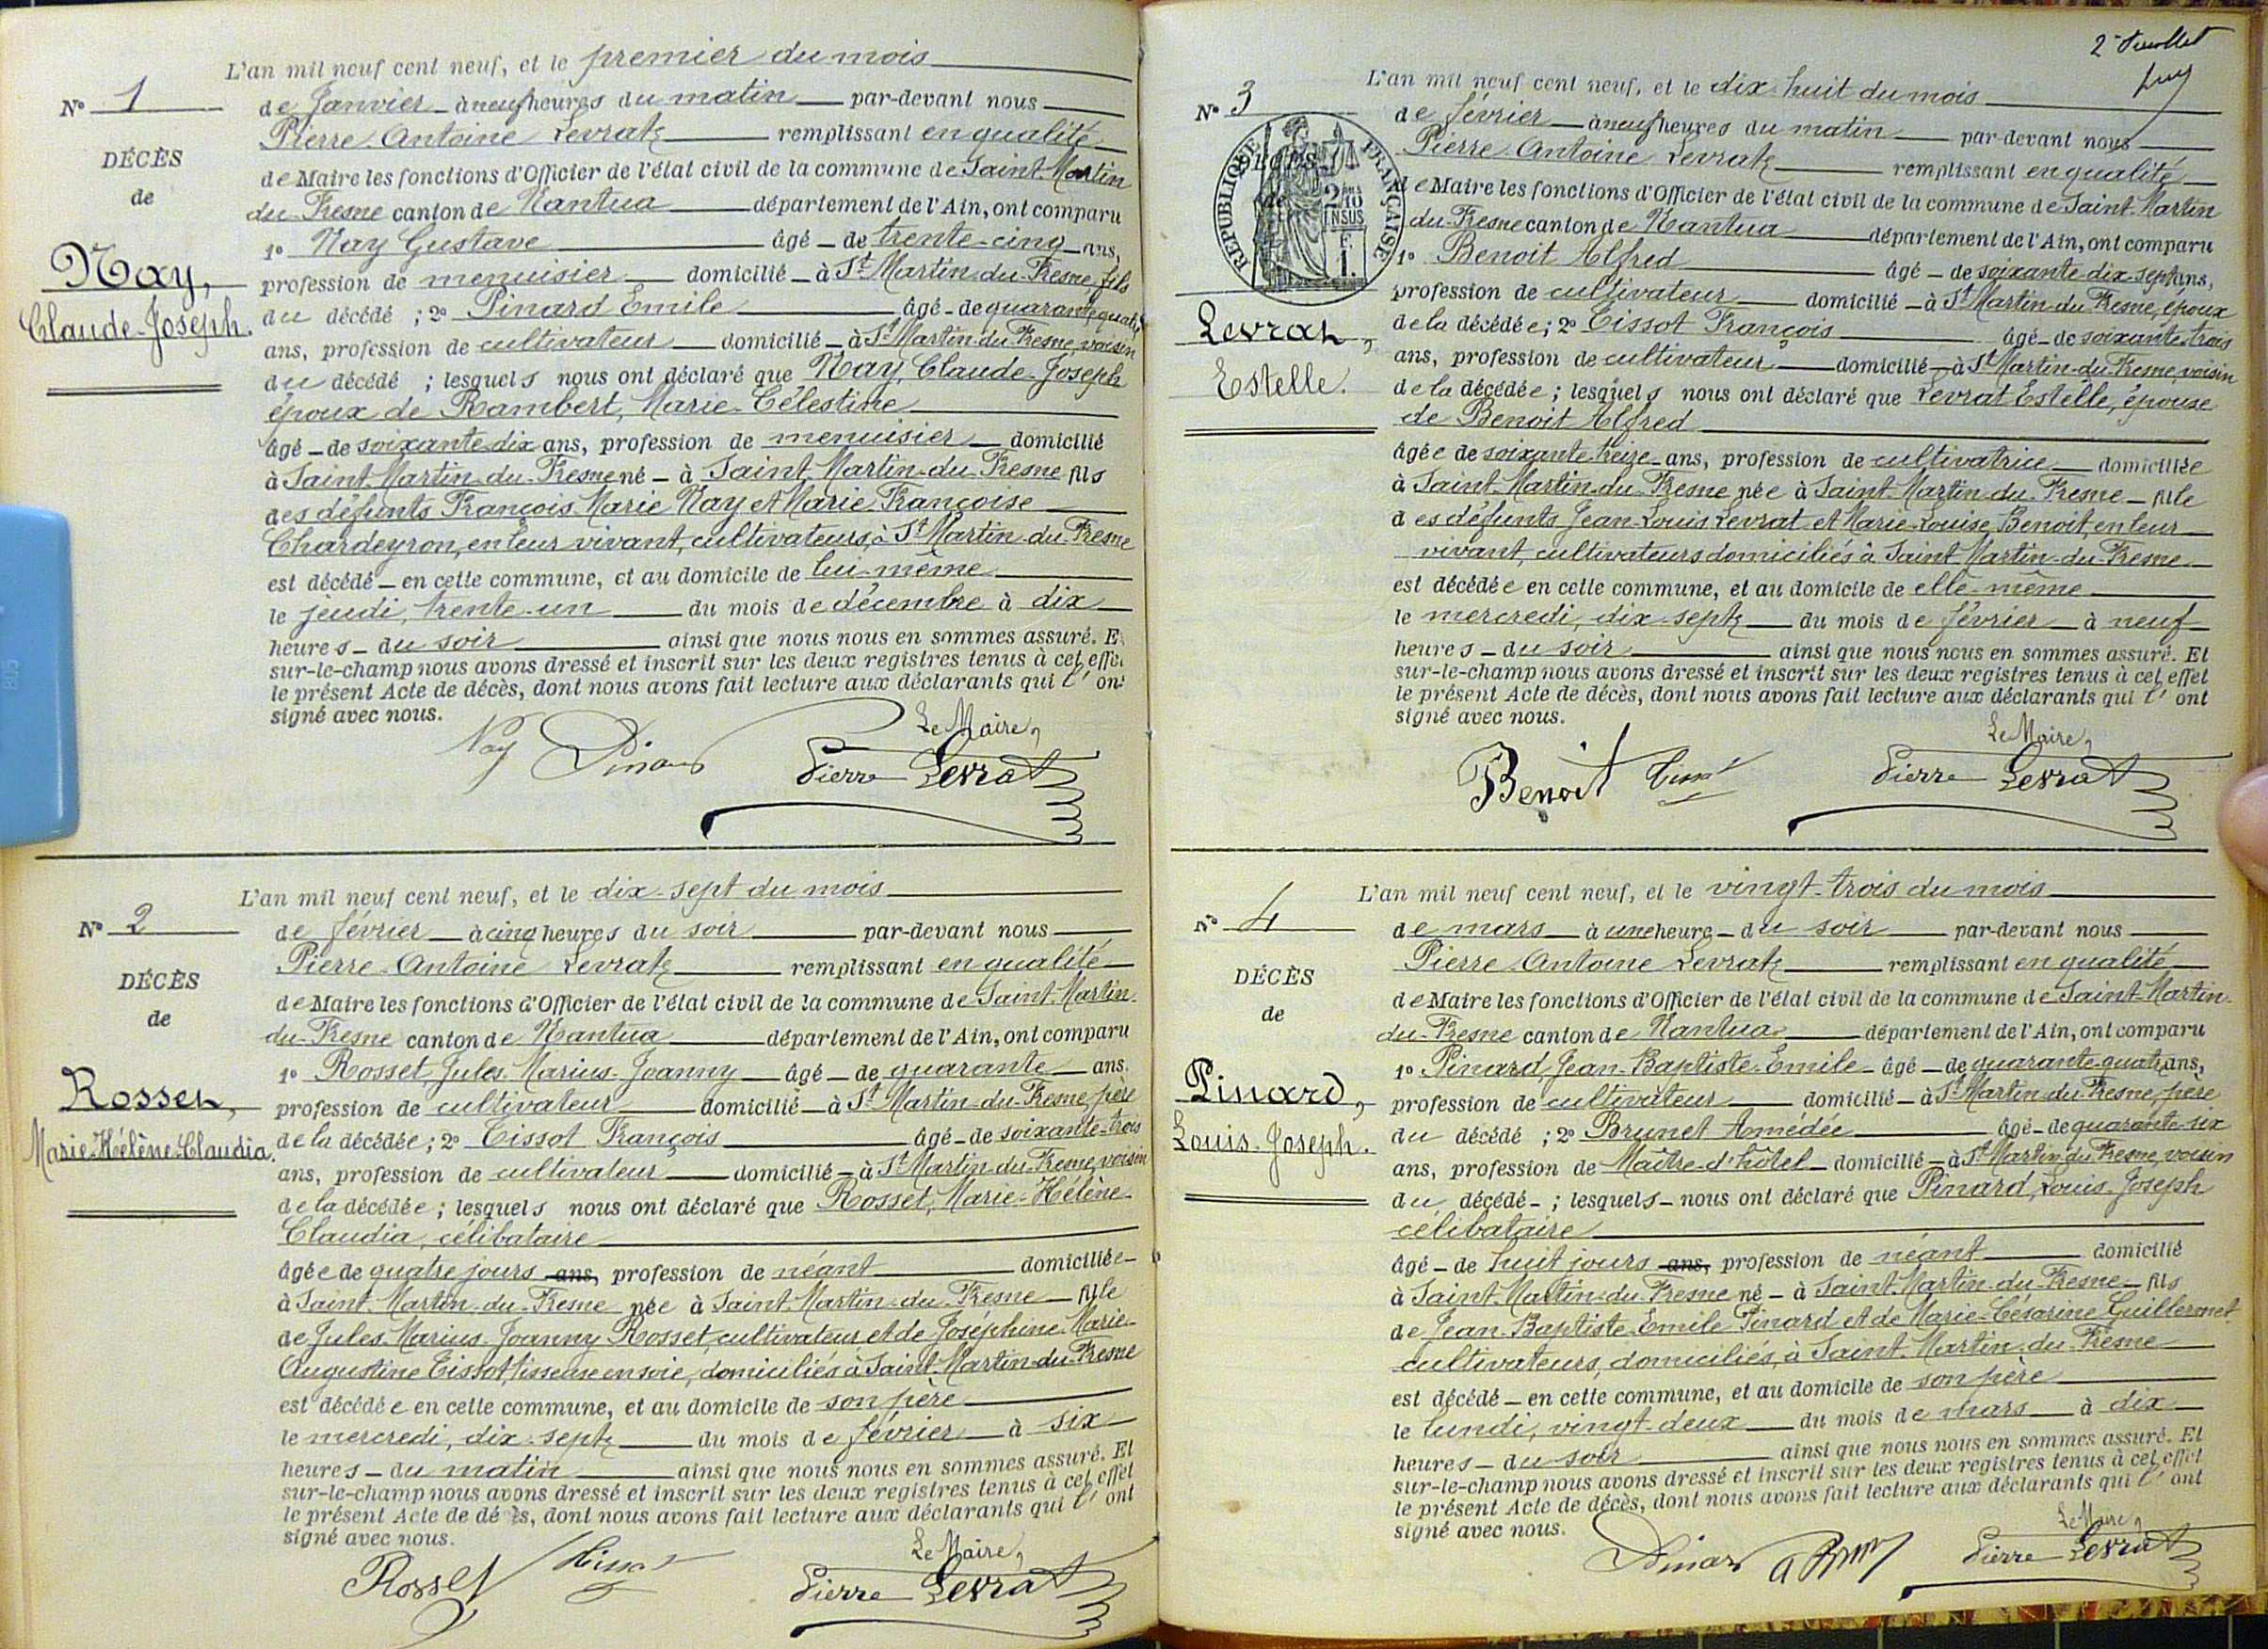 L'an mil neuf cent neuf, et le premier du mois
N° 1
de Janvier à neuf heures du matin par-devant nous
Pierre Antoine Levrat remplissant en qualité
DÉCÈS
de Maire les fonctions d'Officier de l'état civil de la commune de Saint-Martin
de
du-Fresne canton de Nantua département de l'Ain, ont comparu
1° Nay Gustave âgé de trente-cinq ans,
Nay,
profession de menuisier domicilié à St Martin-du-Fresne, fils
Claude-Joseph.
du décédé ; 2° Pinard Emile âgé de quarante quatre
ans, profession de cultivateur domicilié à St Martin-du-Fresne, voisin
du décédé ; lesquels nous ont déclaré que Nay, Claude-Joseph
époux de Rambert, Marie-Célestine
âgé de soixante dix ans, profession de menuisier domicilié
à Saint-Martin-du-Fresne né à Saint-Martin-du-Fresne fils
des défunts François Marie Nay et Marie Françoise
Chardeyron, en leur vivant, cultivateurs, à St Martin-du-Fresne
est décédé en cette commune, et au domicile de lui-même
le jeudi, trente-un du mois de décembre à dix
heures du soir ainsi que nous nous en sommes assuré. E
sur-le-champ nous avons dressé et inscrit sur les deux registres tenus à cet effe
le présent Acte de décès, dont nous avons fait lecture aux déclarants qui l' ont
signé avec nous.
Le Maire,
Nay Pinard Pierre Levrat
L'an mil neuf cent neuf, et le dix-sept du mois
N° 2
de février à cinq heures du soir par-devant nous
Pierre-Antoine Levrat remplissant en qualité
DÉCÈS
de Maire les fonctions d'Officier de l'état civil de la commune de Saint-Martin
de
du-Fresne canton de Nantua département de l'Ain, ont comparu
1° Rosset, Jules-Marius-Joanny âgé de quarante ans.
Rosset,
profession de cultivateur domicilié à St Martin-du-Fresne, père
Marie-Hélène-Claudia.
de la décédée ; 2° Tissot François âgé de soixante-trois
ans, profession de cultivateur domicilié à St Martin-du-Fresne, voisin
de la décédée ; lesquels nous ont déclaré que Rosset, Marie-Hélène-
Claudia, célibataire
âgée de quatre jours ans, profession de néant domiciliée
à Saint-Martin-du-Fresne née à Saint-Martin-du-Fresne fille
de Jules-Marius-Joanny Rosset, cultivateur et de Joséphine-Marie-
Augustine Tissot, tisseuse en soie, domiciliés à Saint-Martin-du-Fresne
est décédée en cette commune, et au domicile de son père
le mercredi, dix-sept du mois de février à six
heures du matin ainsi que nous nous en sommes assuré. Et
sur-le-champ nous avons dressé et inscrit sur les deux registres tenus à cet effet
le présent Acte de décès, dont nous avons fait lecture aux déclarants qui l' ont
signé avec nous.
Le Maire,
Rosset Tissot Pierre Levrat
2e feuillet
L'an mil neuf cent neuf, et le dix-huit du mois
N° 3
de février à neuf heures du matin par-devant nous
Pierre-Antoine Levrat remplissant en qualité
RÉPUBLIQUE FRANÇAISE
2/10
EN SUS
de Maire les fonctions d'Officier de l'état civil de la commune de Saint-Martin
du-Fresne canton de Nantua département de l'Ain, ont comparu
1° Benoit Alfred âgé de soixante-dix-sept ans,
profession de cultivateur domicilié à St Martin-du-Fresne, époux
Levrat,
de la décédée ; 2° Tissot François âgé de soixante-trois
Estelle.
ans, profession de cultivateur domicilié à St Martin-du-Fresne, voisin
de la décédée ; lesquels nous ont déclaré que Levrat Estelle, épouse
de Benoit Alfred
âgée de soixante treize ans, profession de cultivatrice domiciliée
à Saint-Martin-du-Fresne née à Saint-Martin-du-Fresne fille
des défunts Jean-Louis Levrat et Marie-Louise Benoit, en leur
vivant, cultivateurs domiciliés à Saint-Martin-du-Fresne
est décédée en cette commune, et au domicile de elle-même
le mercredi, dix-sept du mois de février à neuf
heures du soir ainsi que nous nous en sommes assuré. Et
sur-le-champ nous avons dressé et inscrit sur les deux registres tenus à cet effet
le présent Acte de décès, dont nous avons fait lecture aux déclarants qui l' ont
signé avec nous.
Le Maire,
Benoit Tissot Pierre Levrat
L'an mil neuf cent neuf, et le vingt-trois du mois
N° 4
de mars à une heure du soir par-devant nous
Pierre-Antoine Levrat remplissant en qualité
DÉCÈS
de Maire les fonctions d'Officier de l'état civil de la commune de Saint-Martin
de
du-Fresne canton de Nantua département de l'Ain, ont comparu
1° Pinard, Jean-Baptiste-Emile âgé de quarante-quatre ans,
Pinard,
profession de cultivateur domicilié à St Martin-du-Fresne, père
Louis-Joseph.
du décédé ; 2° Brunet Amédée âgé de quarante-six
ans, profession de Maître-d'hôtel domicilié à St Martin-du-Fresne, voisin
du décédé ; lesquels nous ont déclaré que Pinard, Louis-Joseph
célibataire
âgé de huit jours ans, profession de néant domicilié
à Saint-Martin-du-Fresne né à Saint-Martin-du-Fresne fils
de Jean-Baptiste-Emile Pinard et de Marie-Césarine Guillermet
cultivateurs, domiciliés, à Saint-Martin-du-Fresne
est décédé en cette commune, et au domicile de son père
le lundi, vingt-deux du mois de mars à dix
heures du soir ainsi que nous nous en sommes assuré. Et
sur-le-champ nous avons dressé et inscrit sur les deux registres tenus à cet effet
le présent Acte de décès, dont nous avons fait lecture aux déclarants qui l' ont
signé avec nous.
Le Maire,
Pinard Pierre Levrat